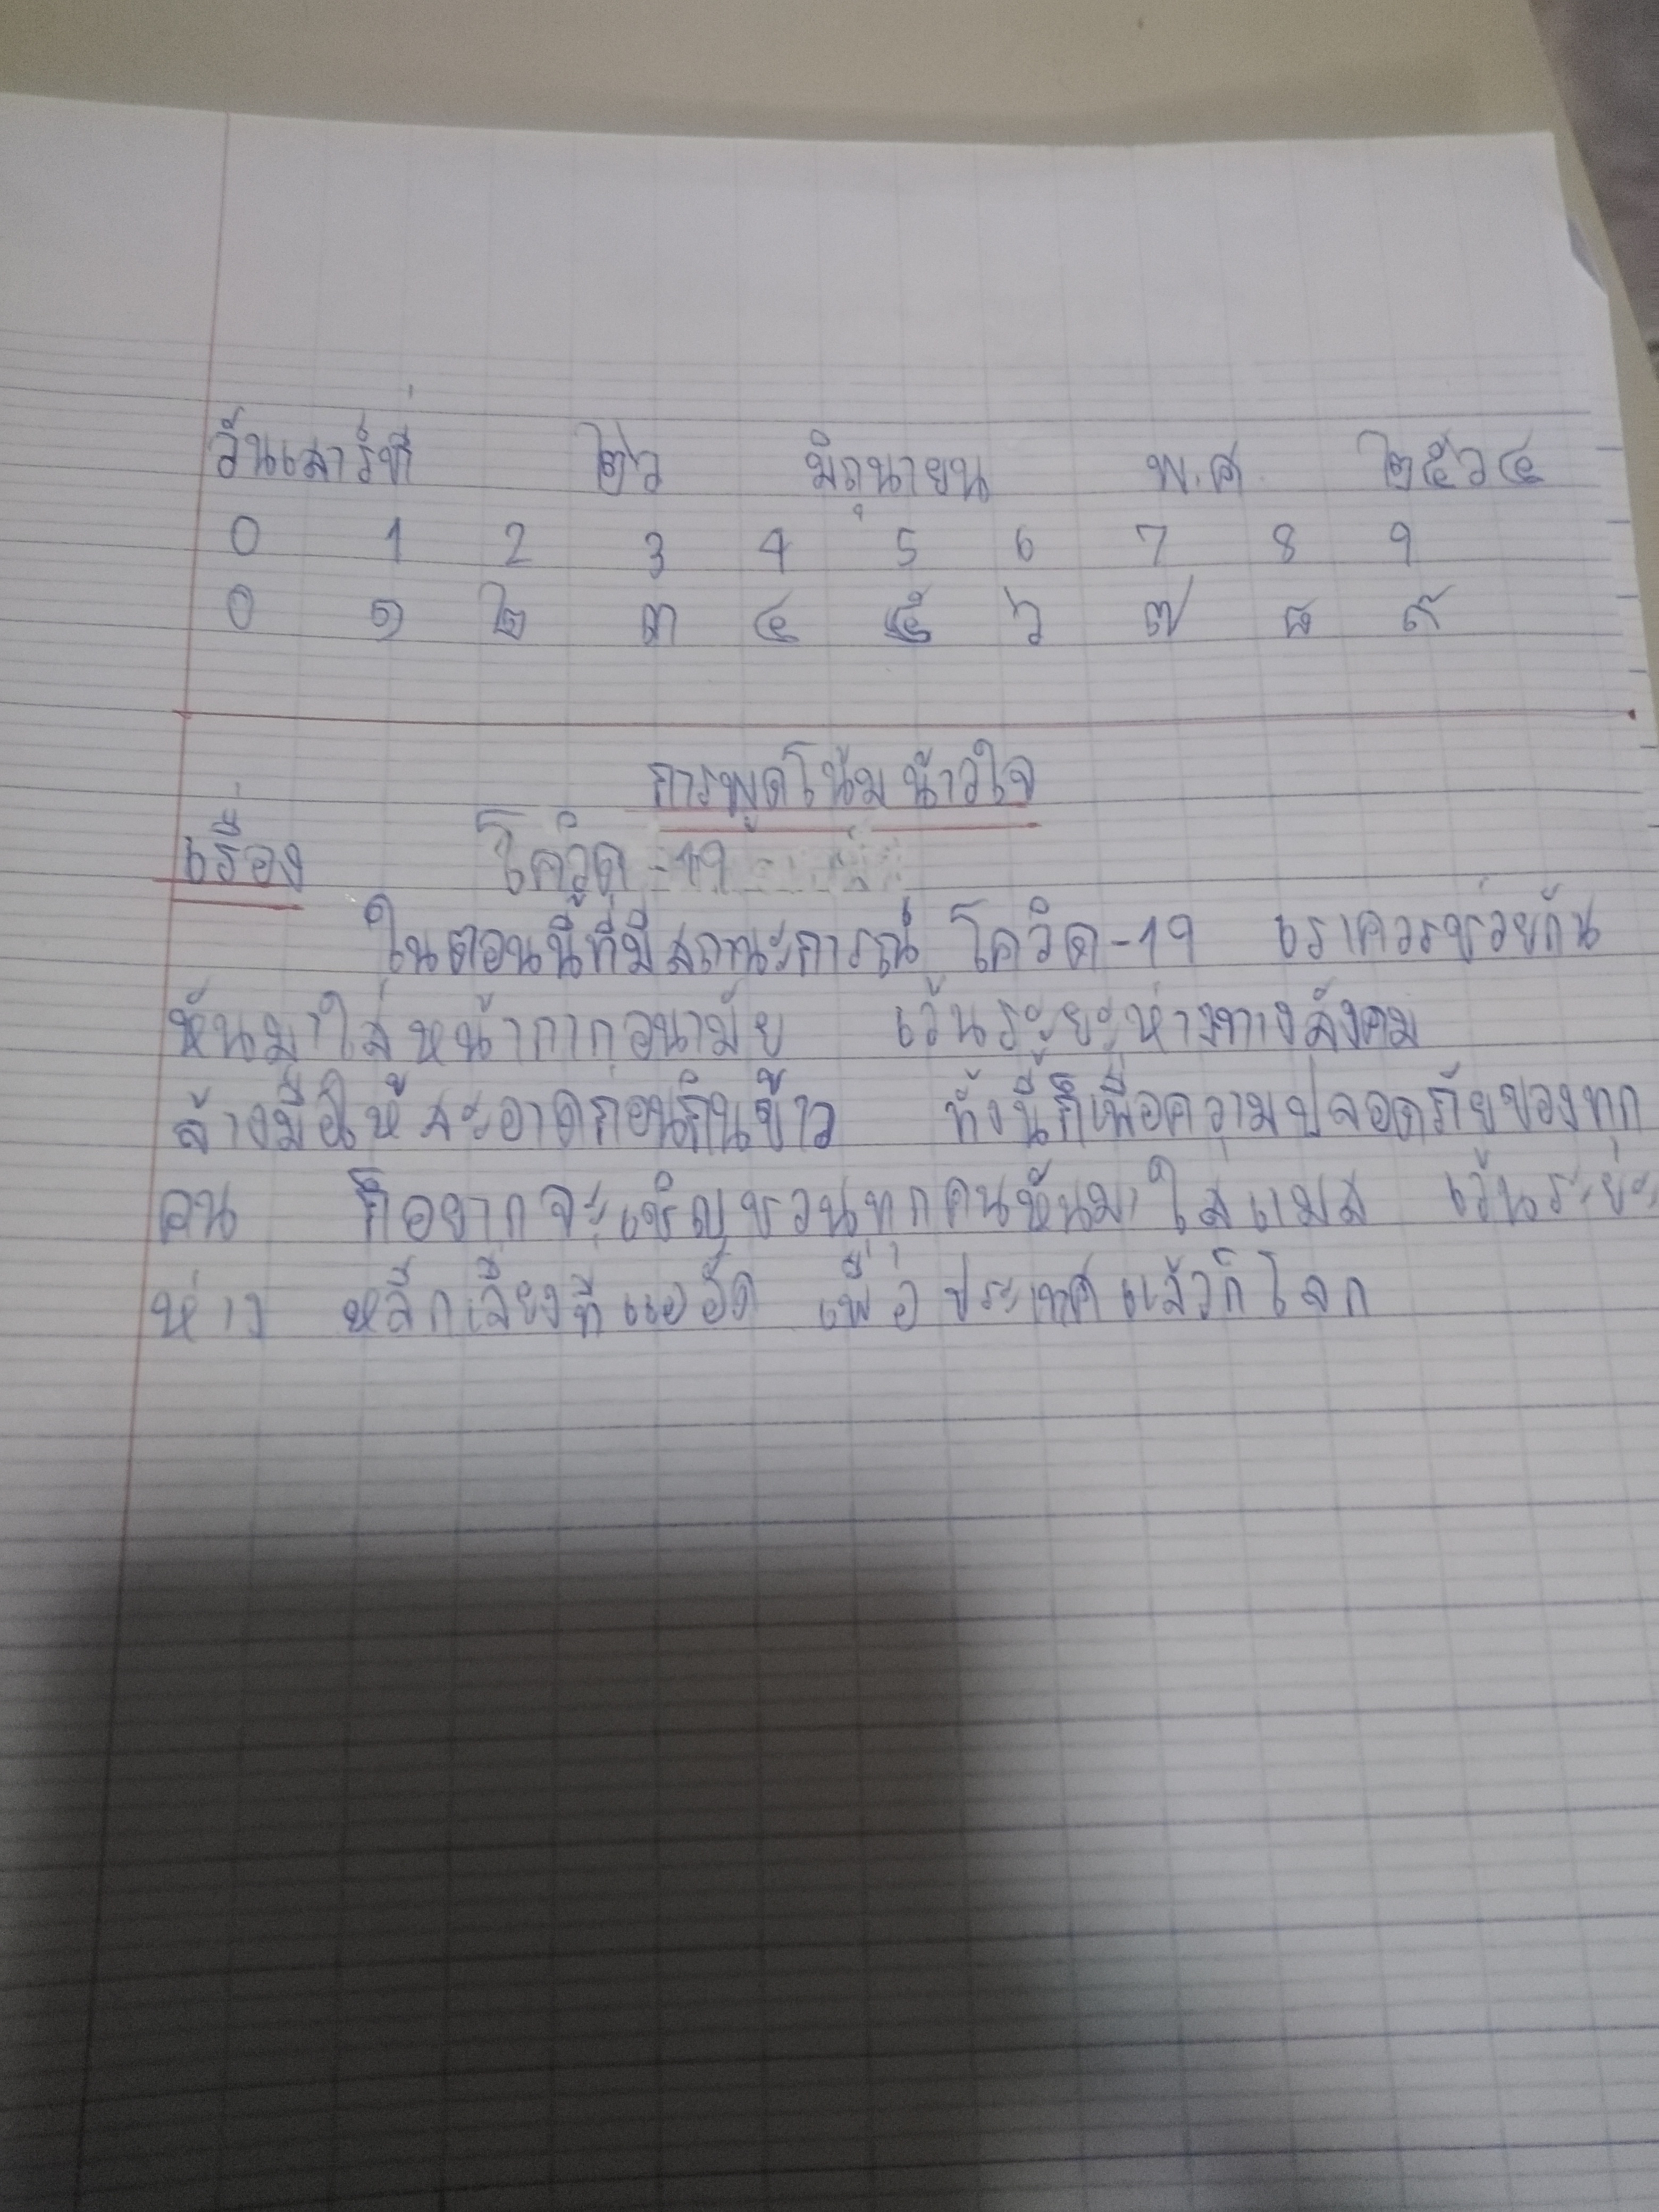 วันเสาร์ที่ ๒๖ มิถุนายน พ.ศ. ๒๕๖๔
0 1 2 3 4 5 6 7 8 9
0 ๑ ๒ ๓ ๔ ๕ ๖ ๗ ๘ ๙
การพูดโน้มน้าวใจ
เรื่อง โควิด-19
ในตอนนี้ที่มีสถานะการณ์ โควิด-19 เราควรช่วยกัน
หันมาใส่หน้ากากอนามัย เว้นระยะห่างทางสังคม
ล้างมือให้สะอาดก่อนกินข้าว ทั้งนี้ก็เพื่อความปลอดภัยของทุก
คน ก็อยากจะเชิญชวนทุกคนหันมาใส่แมส เว้นระยะ
ห่าง หลีกเลี่ยงที่แออัด เพื่อประเทศแล้วก็โลก